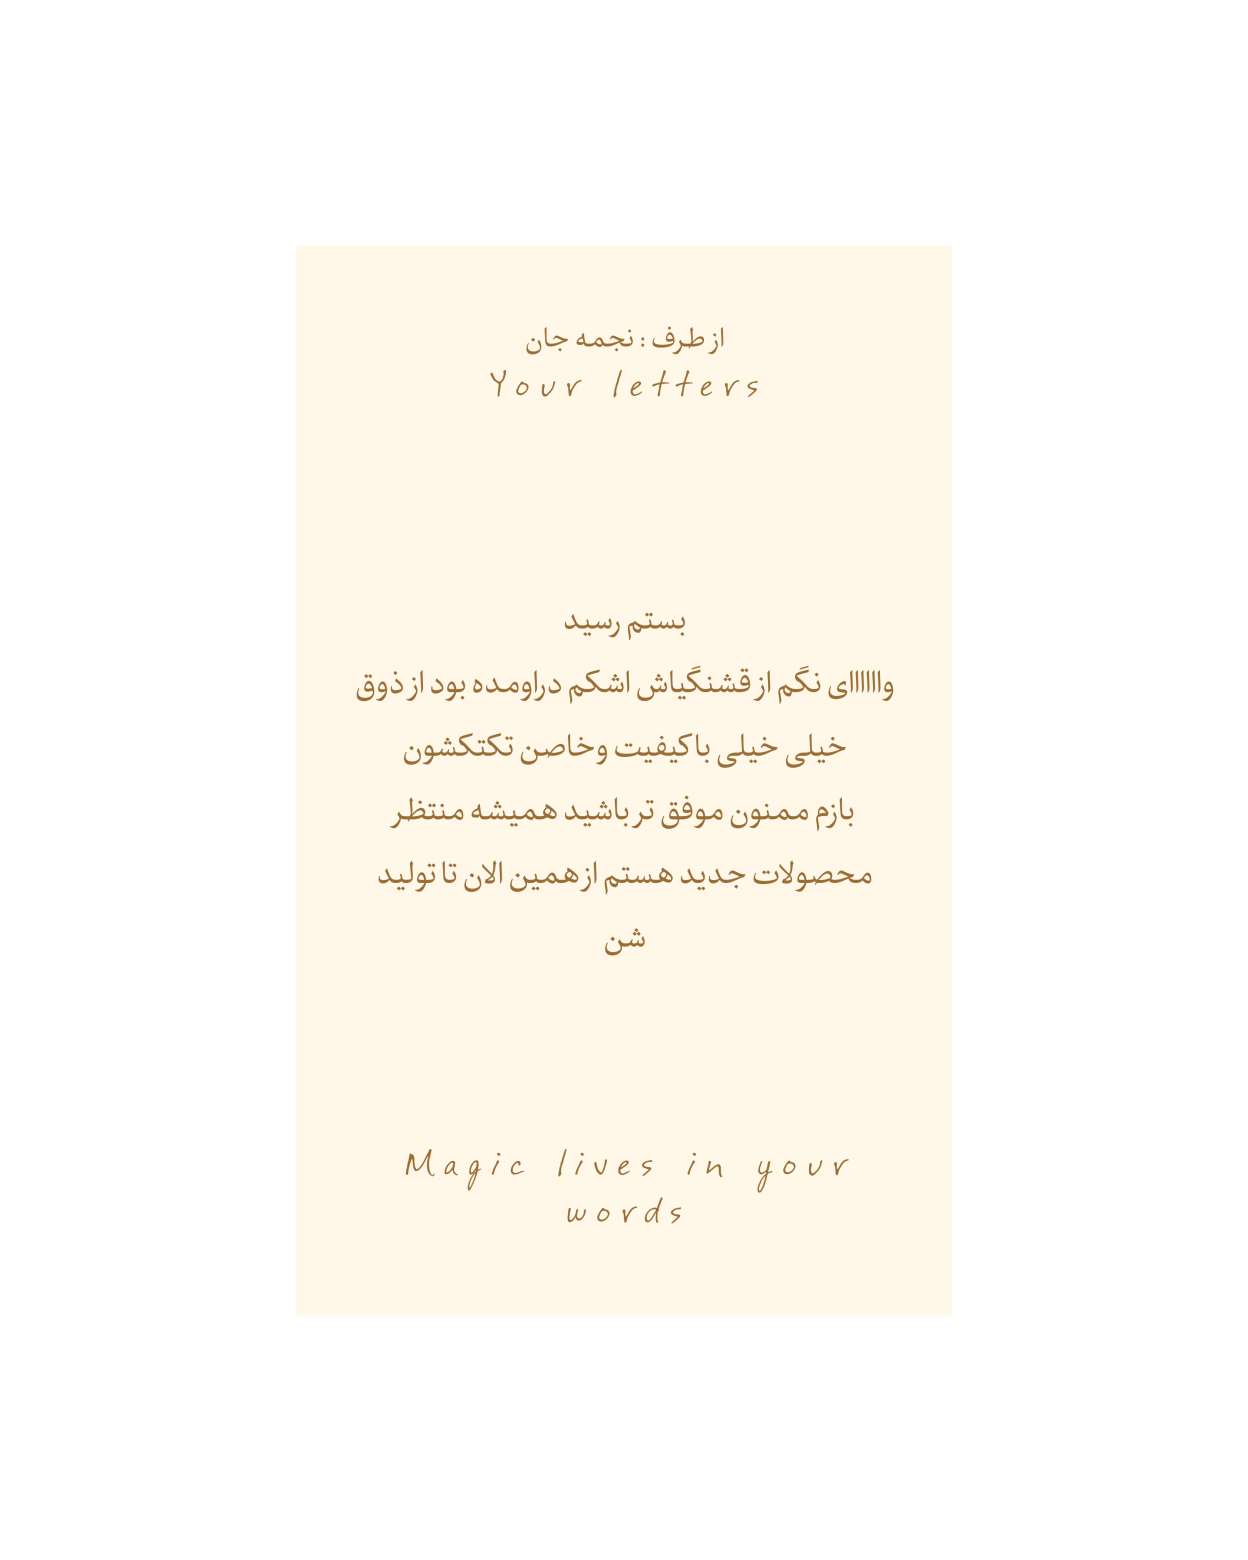 از طرف : نجمه جان
Your letters
بستم رسید
واااااای نگم از قشنگیاش اشکم دراومده بود از ذوق
خیلی خیلی باکیفیت وخاصن تکتکشون
بازم ممنون موفق تر باشید همیشه منتظر
محصولات جدید هستم از همین الان تا تولید
شن
Magic lives in your
words